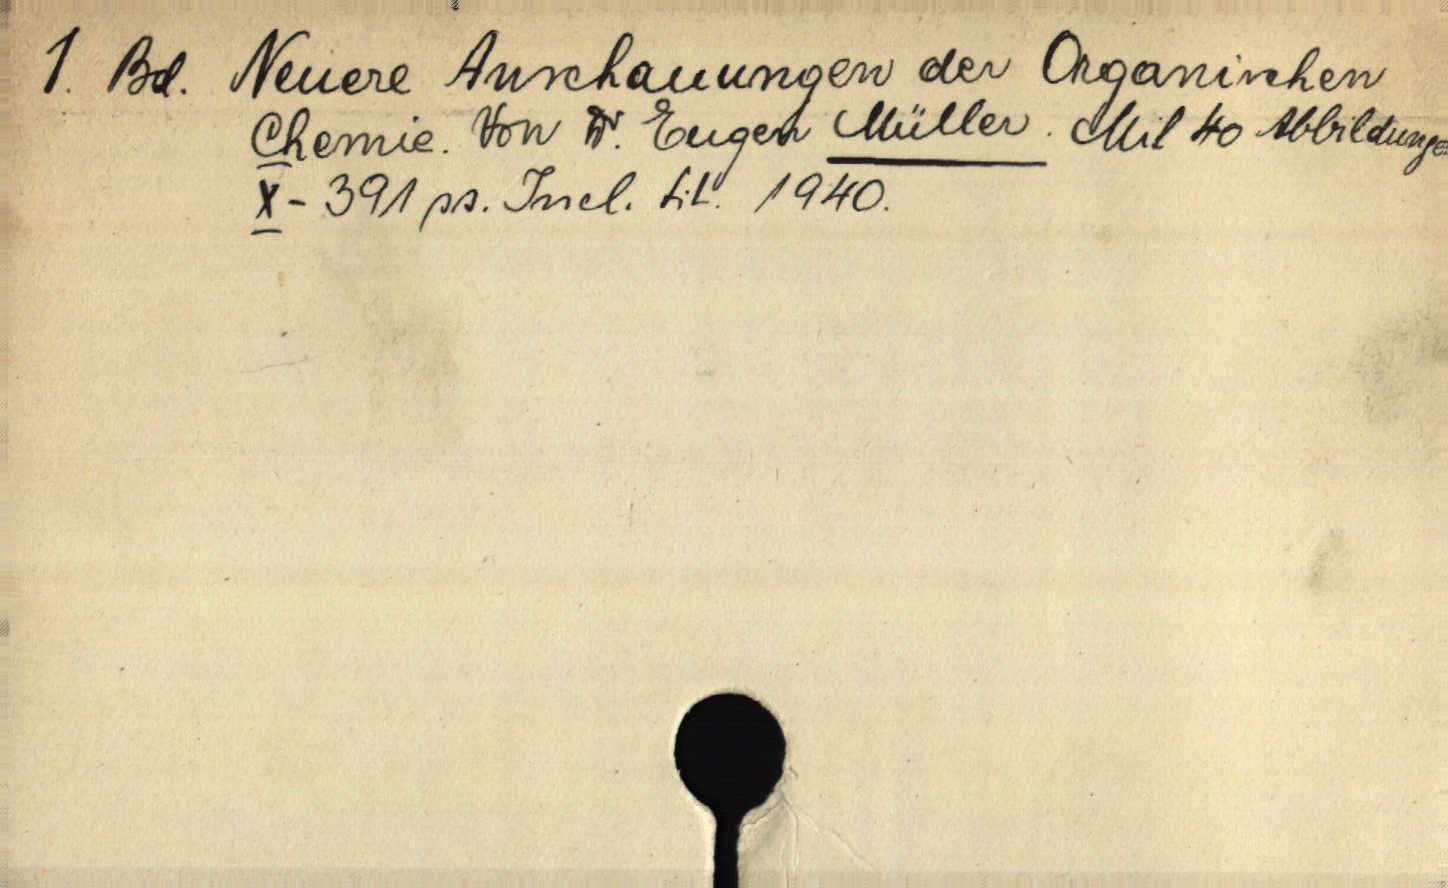 1. Bd. Neuere Anschauungen der Organischen
Chemie. Von Dr. Eugen Müller. Mit 40 Abbildunge
X - 391 ps. Insel. tit. 1940.